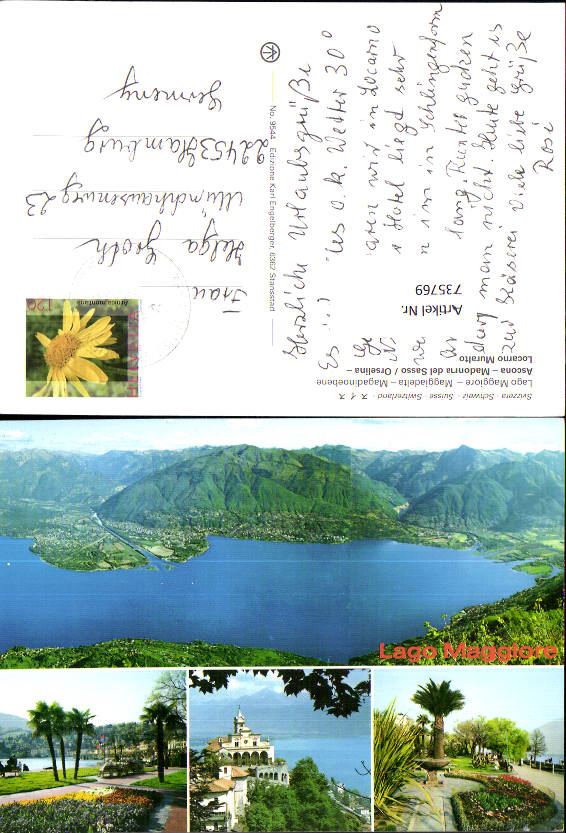 Herzliche Urlaubsgrüße
Es
o.k. Wetter 30°
wir in Locarno
Hotel liegt sehr
im in Schlangenform
lang. Runter gucken
darf man nicht. Heute geht es
zur Gläserei Viele liebe Grüße
Rosi
Artikel Nr.
735769
Frau
Helga Groth
Münchhausenweg 23
22453 Hamburg
Germeny
HELVETIA
Arnica montana
120
No. 9544 Edizione Karl Engelberger, 6362 Stansstad
Svizzera - Schweiz - Suisse - Switzerland
Lago Maggiore – Maggiadelta – Magadinoebene
Ascona – Madonna del Sasso / Orselina –
Locarno Muralto
Lago Maggiore